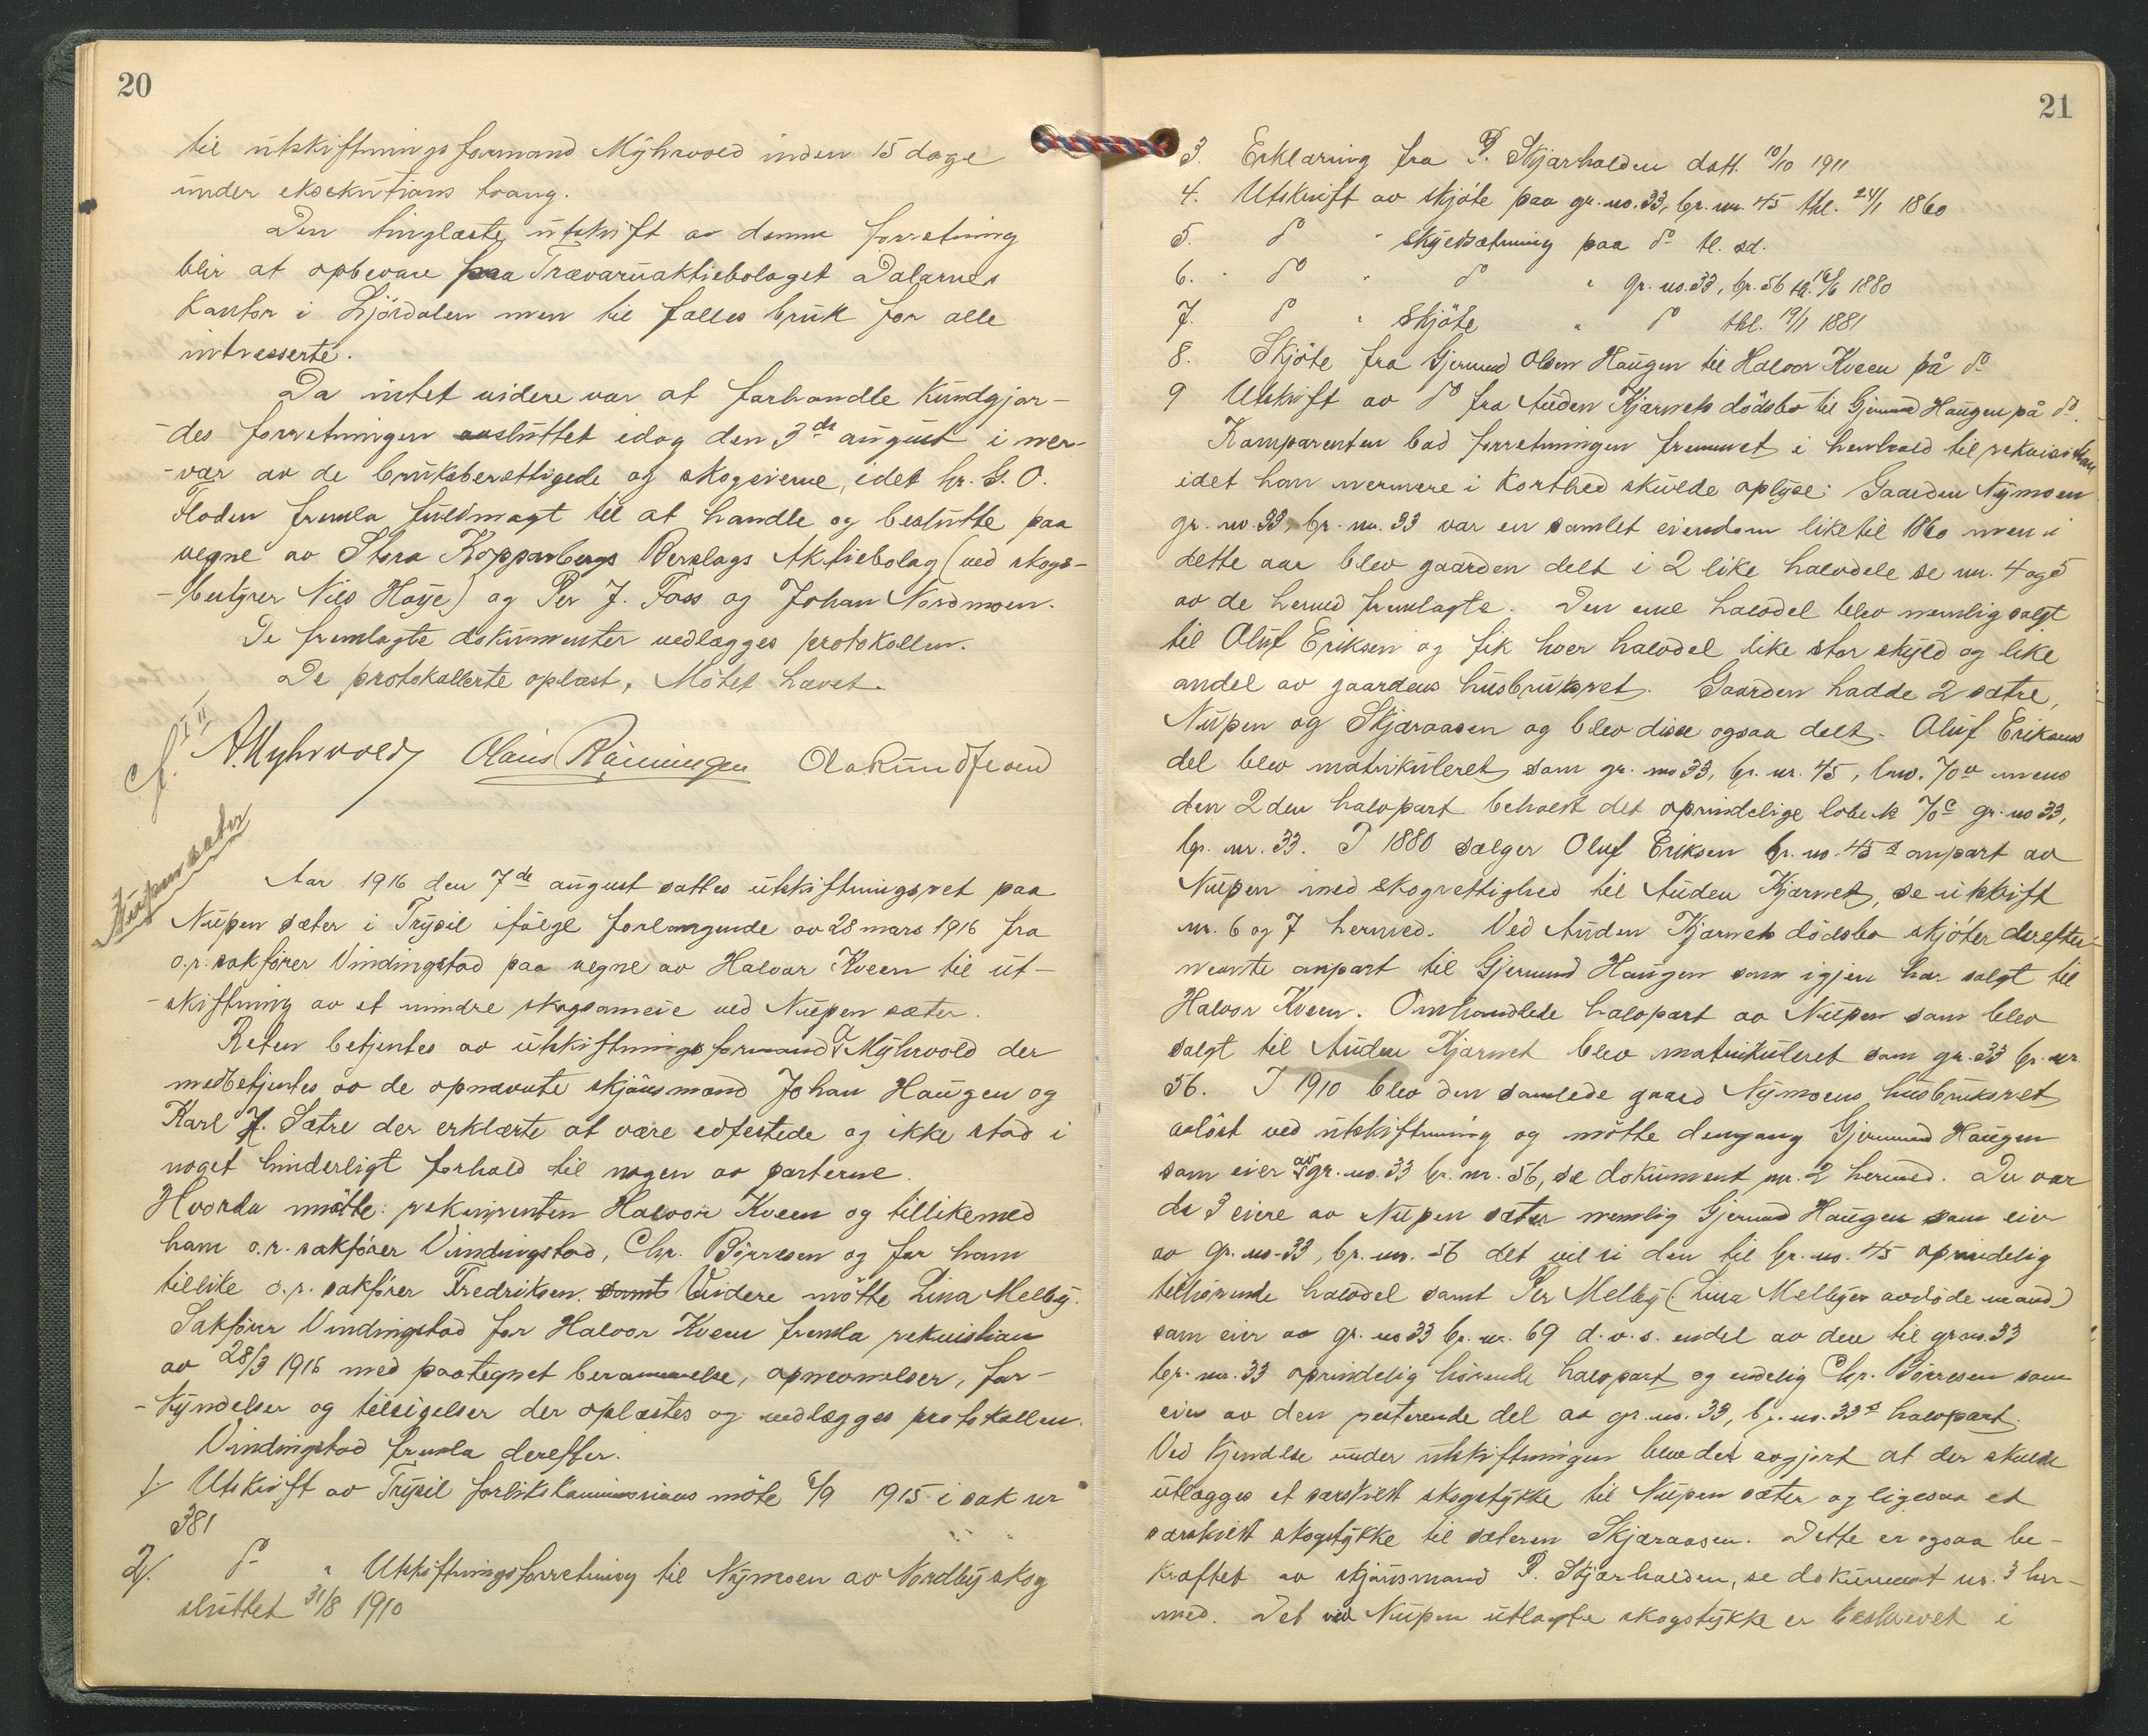 20
til utskiftningsformand Myhrvold inden 15 dage
under eksekutions tvang.
Den tinglæste utskrift av denne forretning
blir at opbevare paa Trævaruaktiebolaget Dalarnes
Kontor i Ljördalen men til fælles bruk for alle
intresserte.
Da intet videre var at forhandle kundgjor-
-des forretningen avsluttet idag den 3de august i nær-
-vær av de bruksberettigede og skogeierne, idet hr. G. O.
Floden fremla fuldmagt til at handle og beslutte paa
vegne av Stora Kopparbergs Berslags Aktiebolag (ved skogs-
-bestyrer Nils Høye) og Per J. Foss og Johan Nordmoen.
De fremlagte dokumenter vedlægges protokollen.
De protokollerte oplæst, Mötet hævet.
cf. I II
A. Myhrvold Olaus Rønningen Ola Rundfloen
Nupen sæter
Aar 1916 den 7de august sattes utskiftningsret paa
Nupen sæter i Trysil ifölge forlangende av 28 mars 1916 fra
o.r. sakfører Vindingstad paa vegne av Halvor Kveen til ut-
-skiftning av et mindre skogsameie ved Nupen sæter.
Reten betjentes av utskiftningsformand A Myhrvold der
medbetjentes av de opnævnte skjönsmænd Johan Haugen og
Karl H. Sætre der erklærte at være edfestede og ikke stod i
noget hinderligt forhold til nogen av parterne.
Hvorda mötte: rekvirenten Halvor Kveen og tillikemed
ham o.r. sakfører Vindingstad, Chr. Börresen og for ham
tillike o.r. sakfører Fredriksen. samt Videre mötte Lina Melby.
Sakfører Vindingstad for Halvor Kveen fremla rekvisition
av 28/3 1916 med paategnet berammelse, opnævnelser, for-
-kyndelser og tilsigelser der oplæstes og vedlægges protokollen.
Vindingstad fremla derefter.
1/. Utskrift av Trysil forlikskommissions möte 6/9 1915 i sak nr
381
2/. do " Utskiftningsforretning til Nymoen av Nordby skog
sluttet 31/8 1910
21
3. Erklæring fra P. Skjærholden datt. 10/10 1911
4. Utskrift av skjöte paa gr. no. 33, br. nr. 45 thl. 24/1 1860
5. do " skyldsætning paa do tl. sd.
6. " do " do " gr. no. 33, br. 56 th. 16/6 1880
7. do " Skjöte " do thl. 19/1 1881
8. Skjöte fra Gjermund Olsen Haugen til Halvor Kveen på do
9 Utskrift av do fra Auden Kjærnets dödsbo til Gjermund Haugen på do.
Komparenten bad forretningen fremmet i henhold til rekvisition
idet han nærmere i Korthed skulde oplyse: Gaarden Nymoen
gr. no. 33, br. nr. 33 var en samlet eiendom liketil 1860 men i
dette aar blev gaarden delt i 2 like halvdele se nr. 4 og 5
av de hermed fremlagte. Den ene halvdel blev nemlig solgt
til Oluf Eriksen og fik hver halvdel like stor skyld og like
andel av gaardens husbruksret. Gaarden hadde 2 sætre,
Nupen og Skjæraasen og blev disse ogsaa delt. Oluf Eriksens
del blev matrikuleret som gr. no 33, br. nr. 45, lnr. 70a mens
den 2den halvpart beholdt det oprindelige löbe nr 70c gr. no 33,
br. nr. 33. I 1880 sælger Oluf Eriksen br. no. 45s anpart av
Nupen med skogrettighed til Auden Kjærnet, se utskrift
nr. 6 og 7 hermed. Ved Auden Kjærnets dödsbo skjöter derefter
nævnte anpart til Gjermund Haugen som igjen har solgt til
Halvor Kveen. Omhandlede halvpart av Nupen som blev
solgt til Auden Kjærnet blev matrikuleret som gr. 33 br. nr
56. I 1910 blev den samlede gaard Nymoens husbruksret
avlöst ved utskiftning og mötte dengang Gjermund Haugen
som eier av gr. no. 33 br. nr. 56, se dokument nr. 2 hermed. Der var
da 3 eiere av Nupen sæter nemlig Gjermund Haugen som eier
av gr. no. 33, br. nr. 56 det vil si den til br. no. 45 oprindelig
tilhørende halvdel samt Per Melby (Lina Melbyes avdöde mand)
som eier av gr. no 33 br. nr. 69 d.v.s. endel av den til gr no. 33
br. nr. 33 oprindelig hörende halvpart og endelig Chr. Börresen som
eier av den resterende del av gr. no. 33, br. no. 33s halvpart.
Ved kjendelse under utskiftningen blev det avgjort at der skulde
utlægges et særskilt skogstykke til Nupen sæter og ligesaa et
særskilt skogstykke til sæteren Skjæraasen. Dette er ogsaa be-
kræftet av skjönsmand P. Skjærholden, se dokument nr. 3 her-
med. Det ved Nupen utlagte skogstykke er beskrevet i